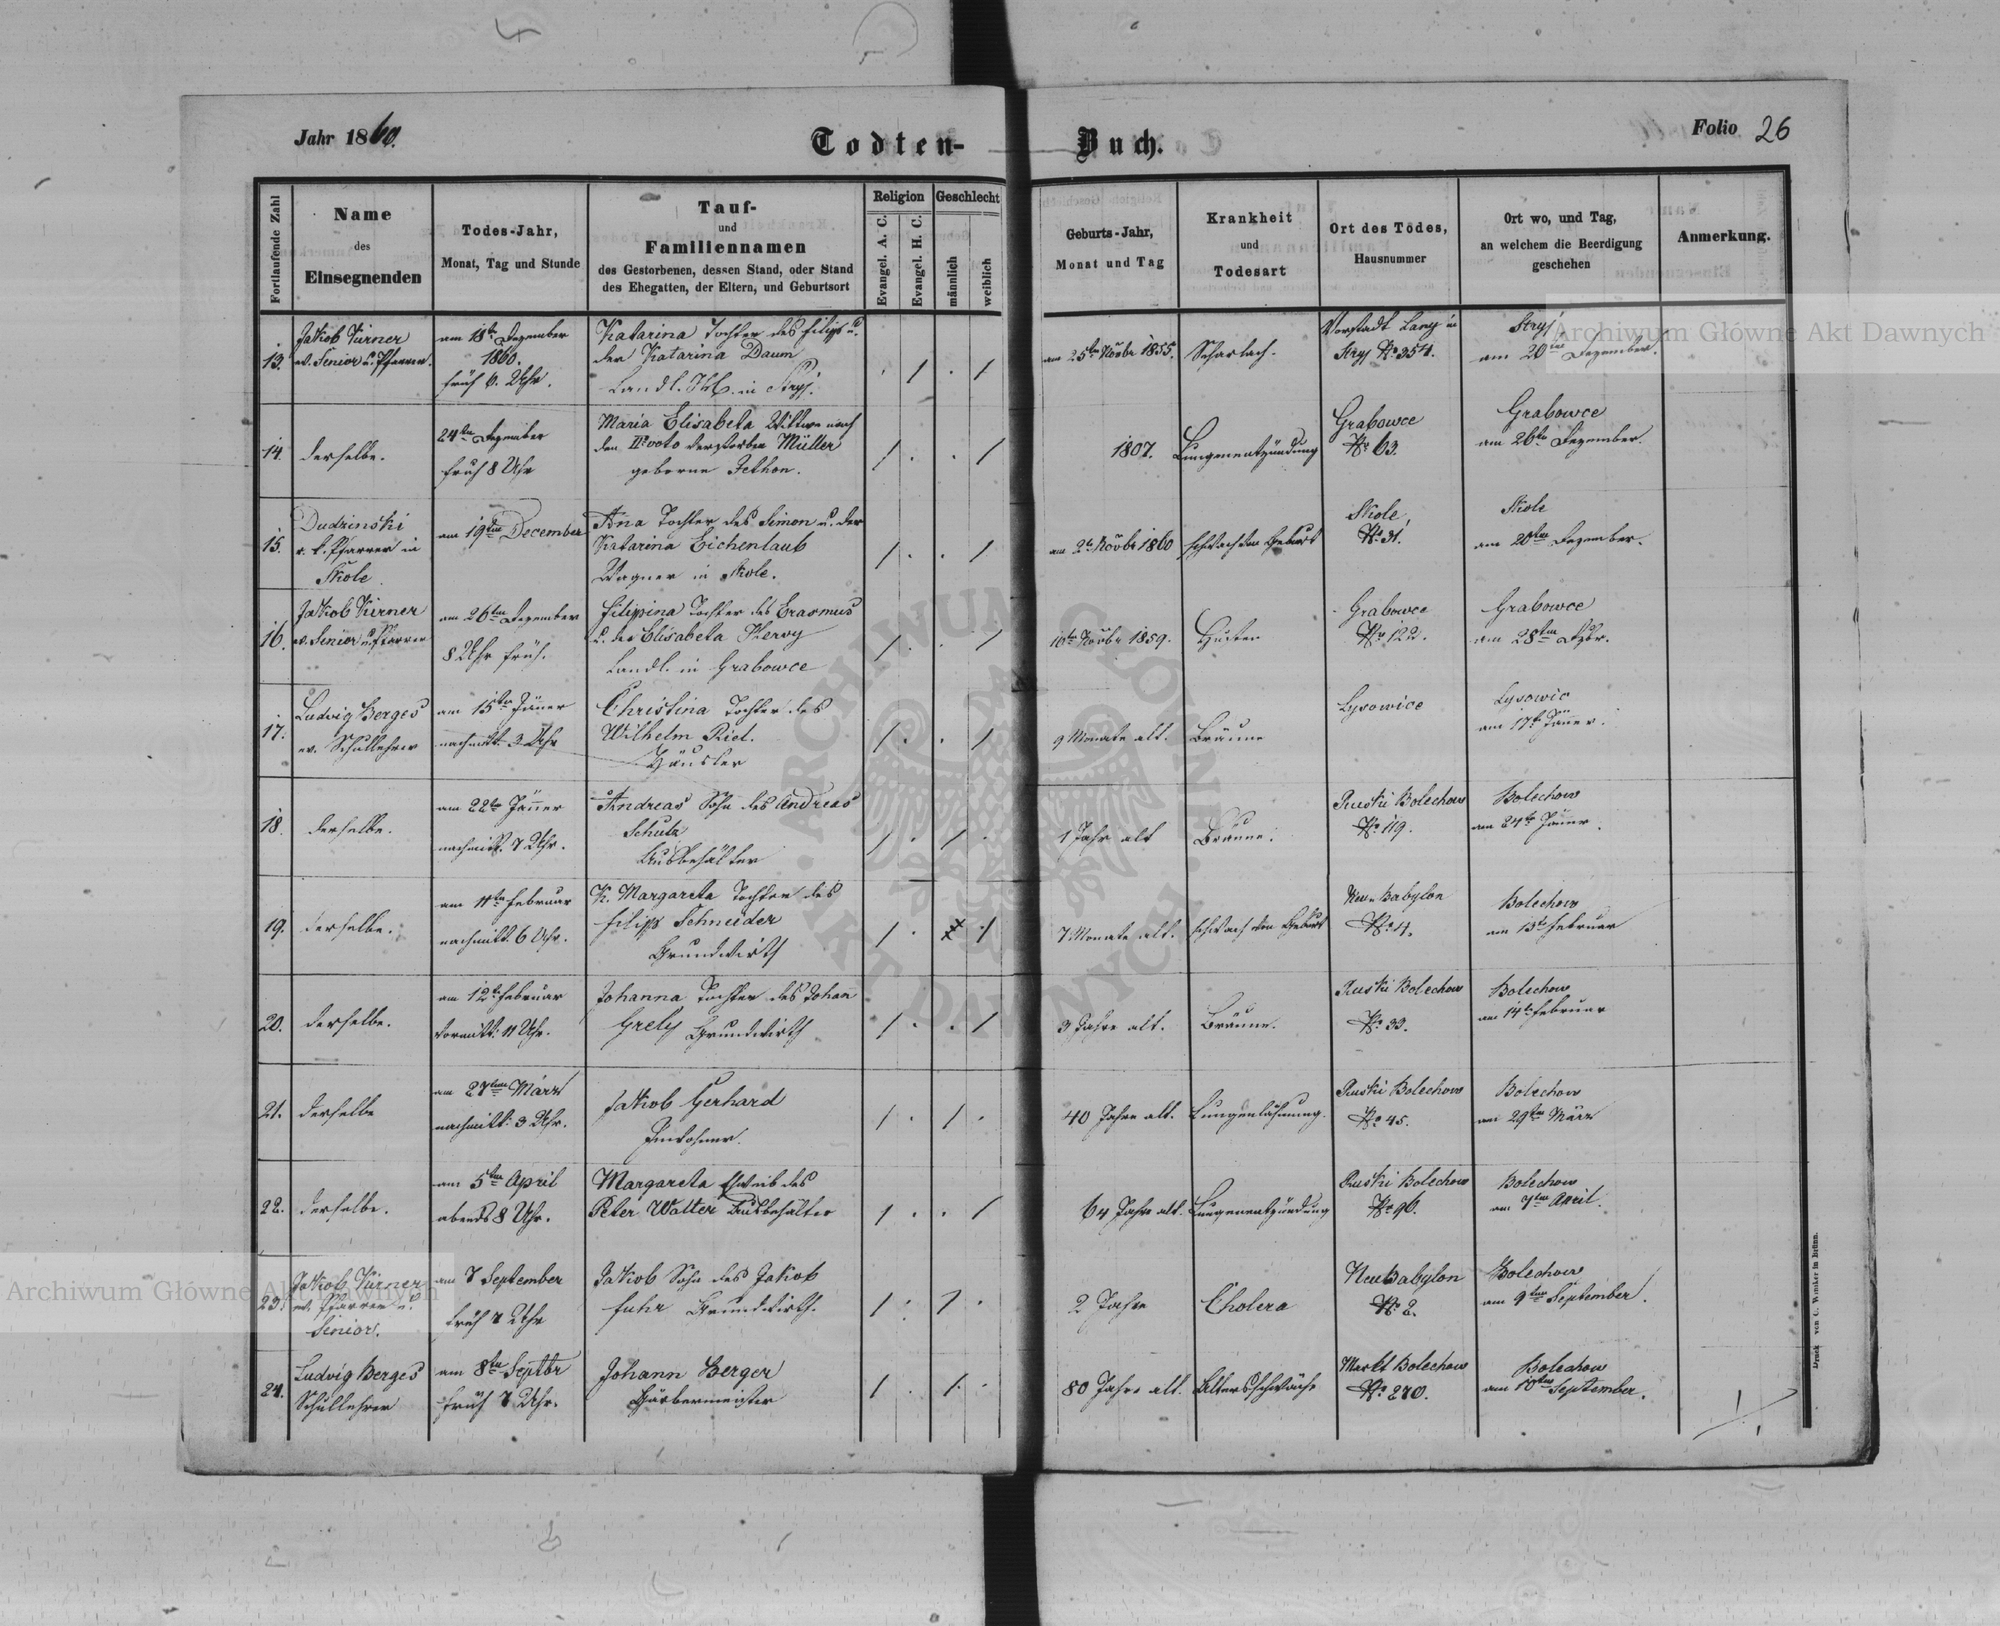 Jahr 1860.
Todten-Buch.
Folio 26
Fortlaufende Zahl
Name
des
Einsegnenden
Todes-Jahr,
Monat, Tag und Stunde
Tauf-
und
Familiennamen
des Gestorbenen, dessen Stand, oder Stand
des Ehegatten, der Eltern, und Geburtsort
Religion
Evangel. A. C.
Evangel. H. C.
Geschlecht
männlich
weiblich
Geburts-Jahr,
Monat und Tag
Krankheit
und
Todesart
Ort des Todes,
Hausnummer
Ort wo, und Tag,
an welchem die Beerdigung
geschehen
Anmerkung.
13.
Jakob Kürner
ev. Senior u. Pfarrer.
am 18ten Dezember
1860.
früh 6. Uhr.
Katarina Tochter des Filipp u.
der Katarina Daum
Landl. in Stryj.
am 25ten Novbr 1855.
Scharlach.
Vorstadt Lany in
Stryj No 354.
Stryj
am 20ten Dezember.
14.
derselbe.
24ten Dezember
früh 8 Uhr
Maria Elisabeta Wittwe nach
den IIo voto verstorben Müller
geborne Jethon.
1807.
Lungenentzündung
Grabowce
No 63.
Grabowce
am 26ten Dezember.
15.
Dudzinski
r. k. Pfarrer in
Skole.
am 19ten December
Ana Tochter des Simon u. der
Katarina Eichenlaub
Wagner in Skole.
am 2te Novbr 1860
schwach von Geburt
Skole
No 31.
Skole
am 20ten Dezember.
16.
Jakob Kürner
ev. Senior u. Pfarrer
am 26ten Dezember
8 Uhr früh.
Filipina Tochter des Erasmus
u. der Elisabeta Kervy
Landl. in Grabowce
10te Novbr 1859.
Husten
Grabowce
No 122.
Grabowce
am 28ten Dzbr.
17.
Ludwig Berges
ev. Schullehrer
am 15ten Jäner
nachmitt. 3 Uhr
Christina Tochter des
Wilhelm Riel.
Häusler
9 Monate alt.
Bräune
Lysowice
Lysowic
am 17t Jäner.
18.
derselbe.
am 22ten Jäner
nachmitt. 7 Uhr.
Andreas Sohn des Andreas
Schutz
Ausbehälter
1 Jahr alt
Bräune.
Ruski Bolechow
No 119.
Bolechow
am 24ten Jäner.
19.
derselbe.
am 11ten Februar
nachmitt. 6 Uhr.
K. Margareta Tochter des
Filipp Schneider
Grundwirth
7 Monate alt.
schwach von Geburt
Neu-Babylon
No 4.
Bolechow
am 13t Februar
20.
derselbe.
am 12t Februar
vormitt. 11 Uhr.
Johanna Tochter des Johan
Grely Grundwirth
3 Jahre alt.
Bräune.
Ruski Bolechow
No 33.
Bolechow
am 14ten Februar
21.
derselbe
am 27ten März
nachmitt. 3 Uhr.
Jakob Gerhard
Inwohner.
40 Jahre alt.
Lungenlähmung.
Ruski Bolechow
No 45.
Bolechow
am 29ten März
22.
derselbe.
am 5ten April
abends 8 Uhr.
Margareta Eheweib des
Peter Walter Ausbehälter
64 Jahre alt.
Lungenentzündung
Ruski Bolechow
No 96.
Bolechow
am 7ten April.
23.
Jakob Kürner
ev. Pfarrer u.
Senior.
am 7 September
früh 7 Uhr
Jakob Sohn des Jakob
Fuhr Grundwirth.
2 Jahre
Cholera
Neu Babylon
No 2.
Bolechow
am 9ten September.
24.
Ludwig Berges
Schullehrer
am 8ten Septbr
früh 7 Uhr.
Johann Berger
Färbermeister
80 Jahre alt.
Altersschwäche
Markt Bolechow
No 270.
Bolechow
am 10ten September.
Druck von C. Winiker in Brünn.
Archiwum Główne Akt Dawnych
Archiwum Główne Akt Dawnych
ARCHIWUM GŁÓWNE AKT DAWNYCH